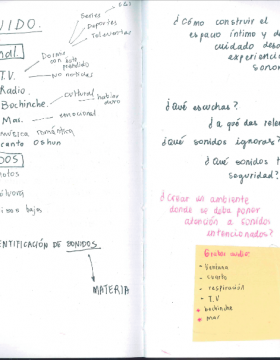 UIDO.
Series
Deportes
Telenovelas
nal
T.V.
Dormir
con este
prendido
No noticias
Radio.
Bochinche.
cultural
hablar
duro
Mar.
emocional
música romántica
canto Oshun
DOS
otos
ólvora
inas bajo
ENTIFICACIÓN DE SONIDOS.
MATERIA
¿Cómo construir el
espacio íntimo y d
cuidado desd
experienci
sonor
¿Qué escuchas?
¿a qué das rele
¿Qué sonidos ignoras?
¿Qué sonidos t
seguridad?
¿Crear un ambiente
donde se deba poner
atención a sonidos
intencionados?
Grabar audio:
- Ventana
- cuarto
- respiración
- T.V
* bochinche
* mar